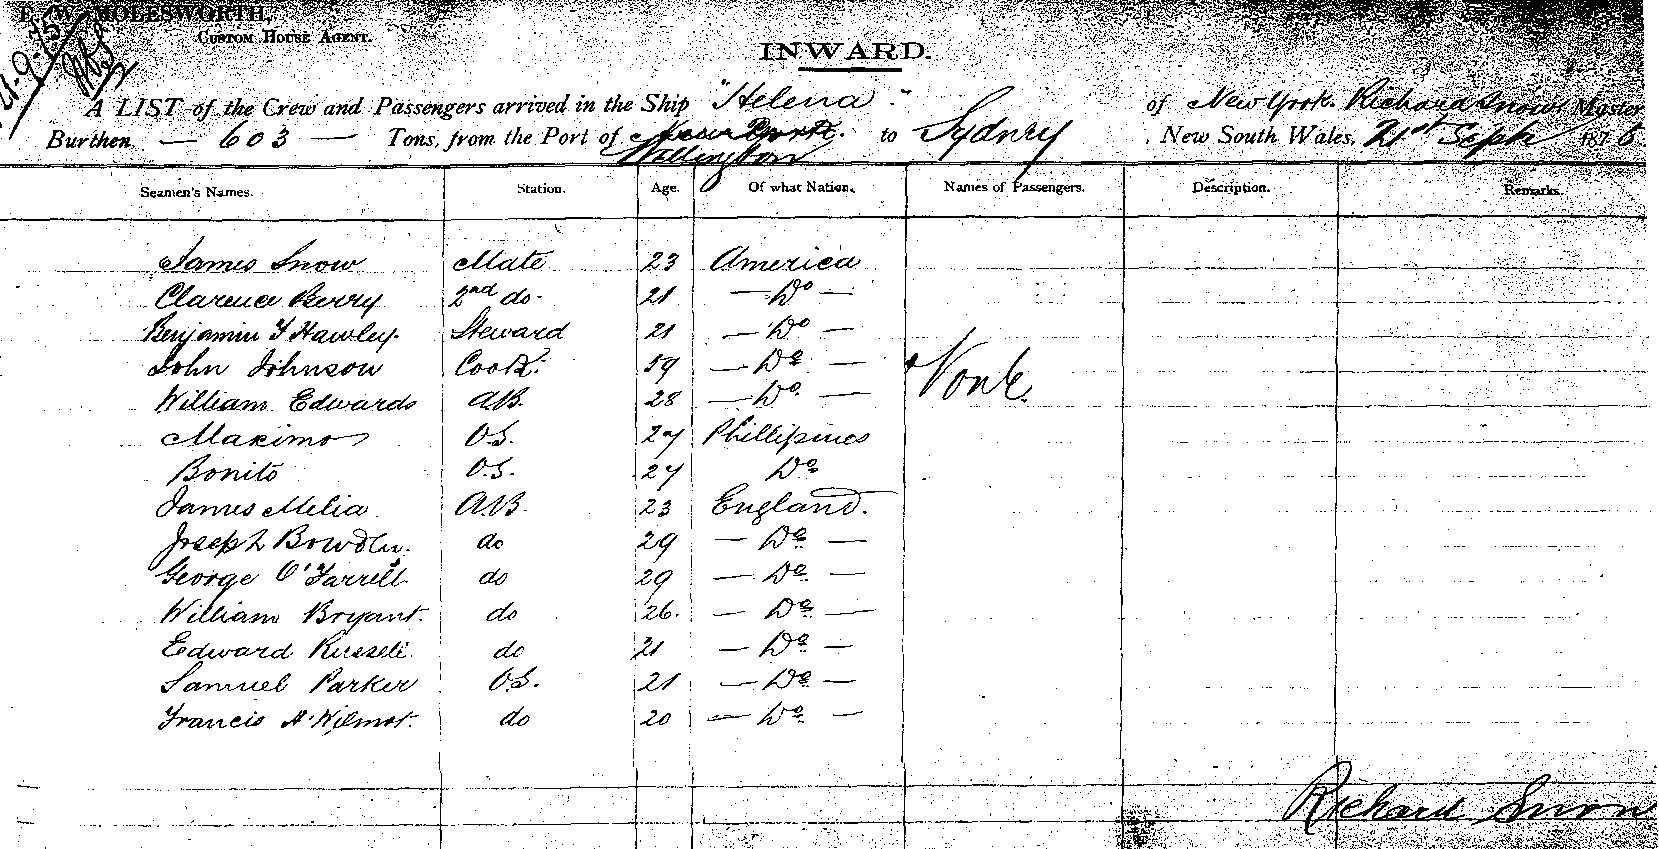 E. W. MOLESWORTH,
CUSTOM HOUSE AGENT.
INWARD.
A LIST of the Crew and Passengers arrived in the Ship "Helena" of New York. Richard Snow Master
Burthen — 603 — Tons, from the Port of New York. to Sydney New South Wales, 21st Sept 1875
Wellington
Seamen's Names. Station. Age. Of what Nation. Names of Passengers. Description. Remarks.
James Snow Mate 23 America
Clarence Berry 2nd do. 21 — Do —
Benjamin F Hawley. Steward 21 — Do —
John Johnson Cook. 59 — Do —
William Edwards A.B. 28 — Do — None
Maximo O.S. 27 Phillipines
Bonito O.S. 27 Do
James Melia A.B. 23 England.
Joseph Bowden. do 29 — Do —
George O'Farrell do 29 — Do —
William Bryant. do 26. — Do —
Edward Russell do 21 — Do —
Samuel Parker O.S. 21 — Do —
Francis A. Wilmot. do 20 — Do —
Richard Snow